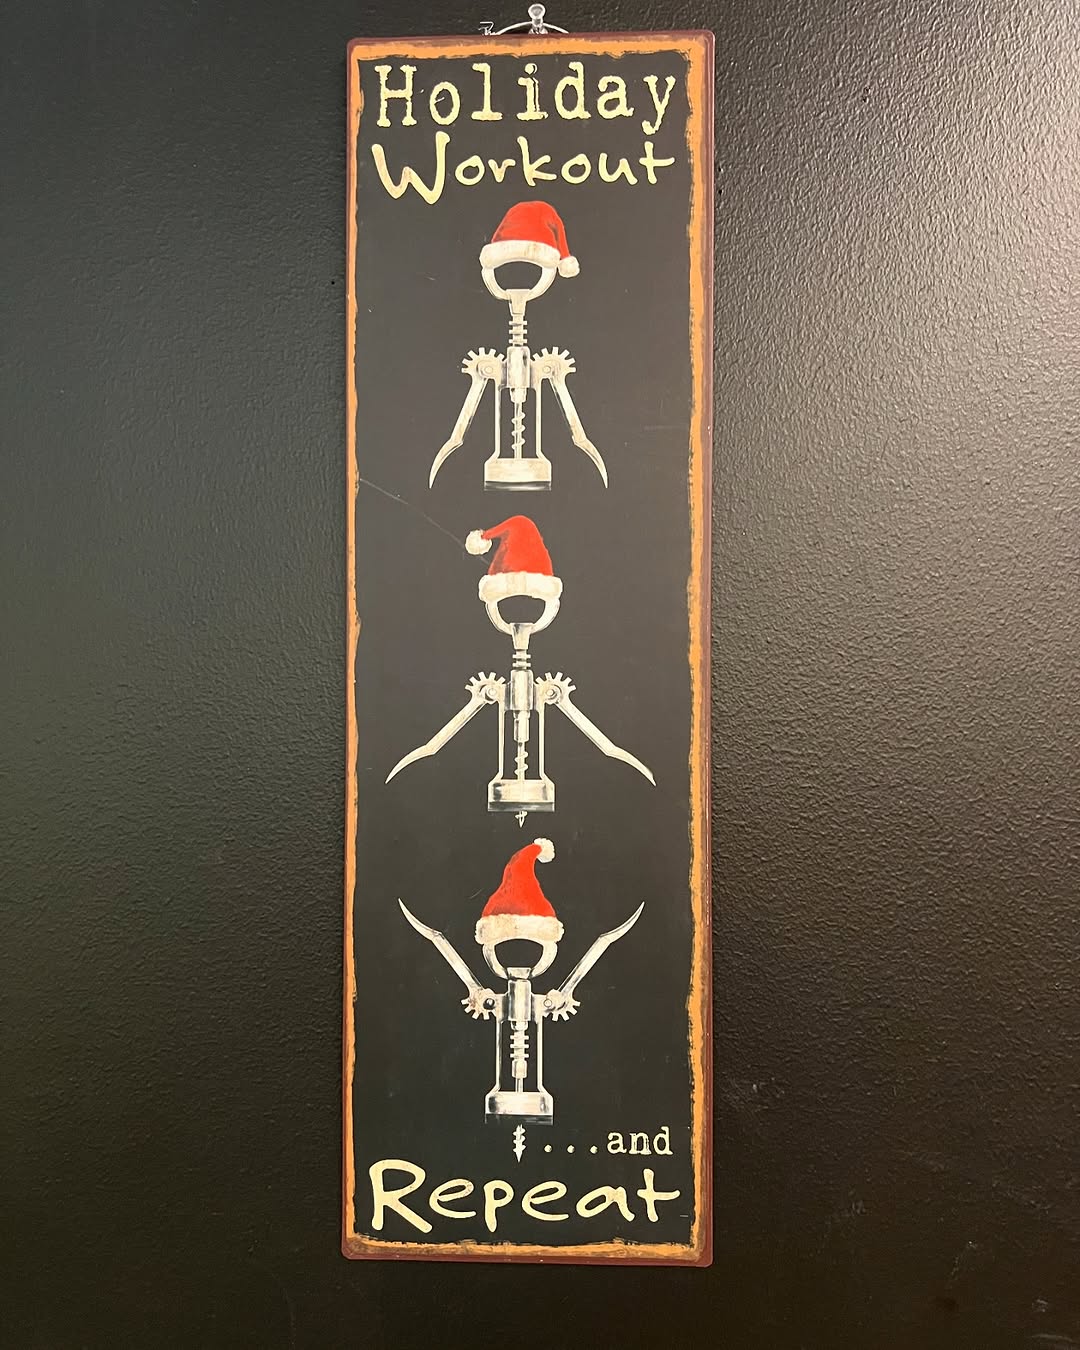 Holiday
Workout
...and
Repeat